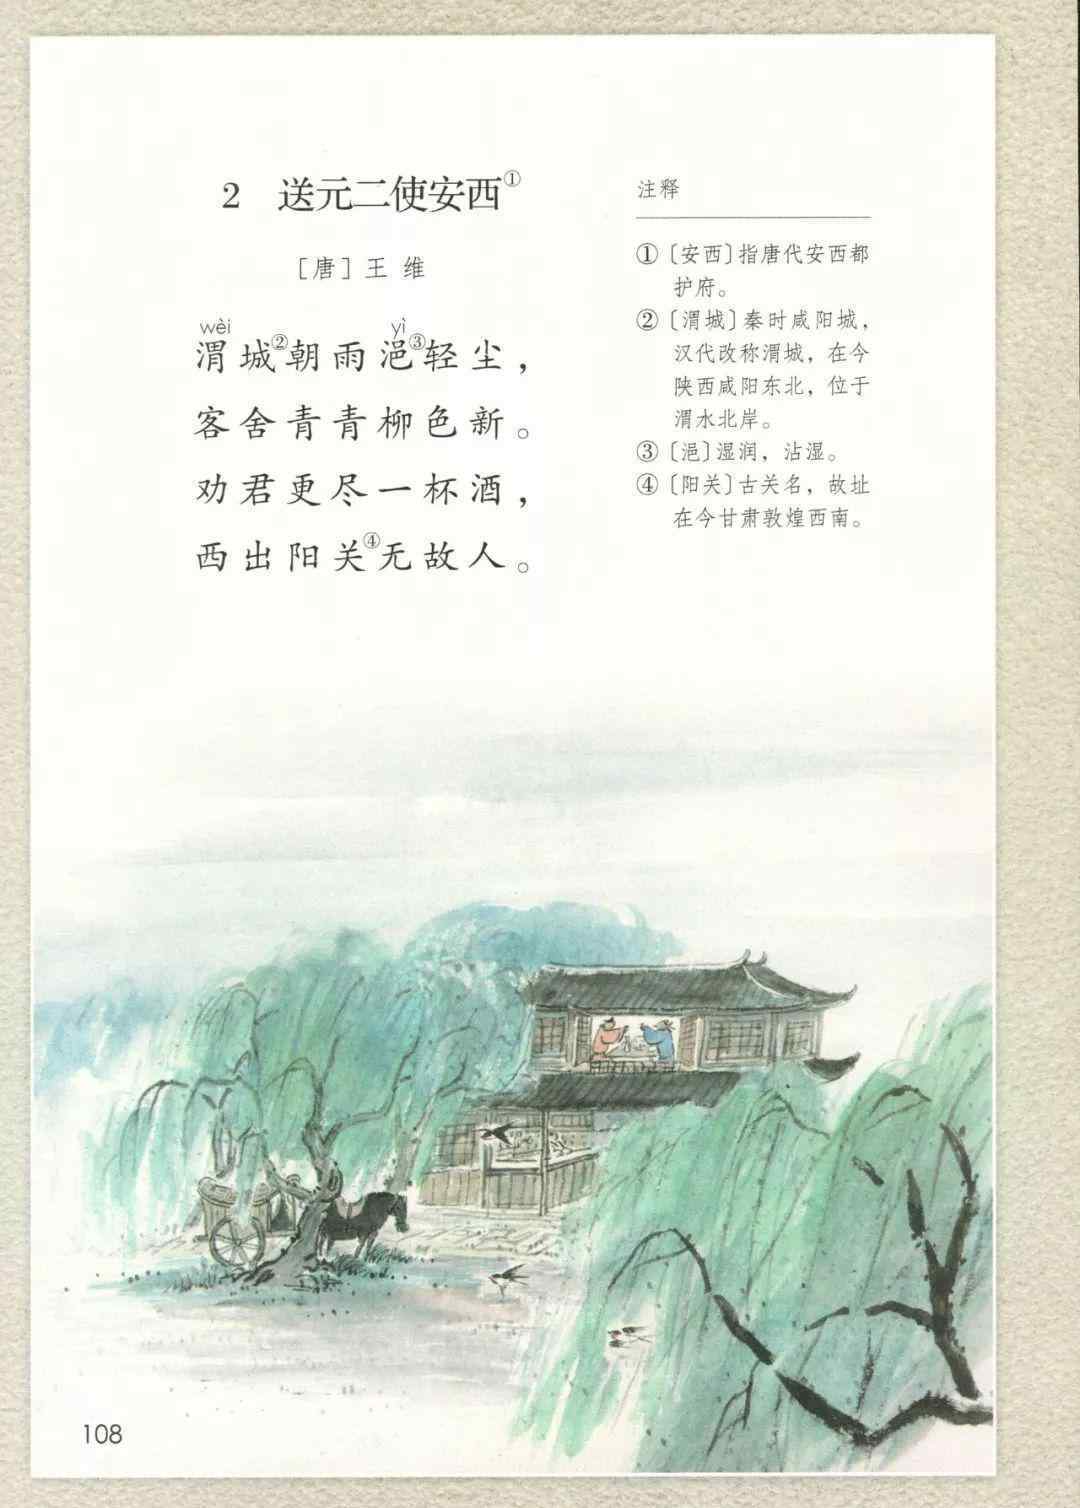 2 送元二使安西①
［唐］王 维
wèi yì
渭城②朝雨浥③轻尘，
客舍青青柳色新。
劝君更尽一杯酒，
西出阳关④无故人。
注释
①〔安西〕指唐代安西都
护府。
②〔渭城〕秦时咸阳城，
汉代改称渭城，在今
陕西咸阳东北，位于
渭水北岸。
③〔浥〕湿润，沾湿。
④〔阳关〕古关名，故址
在今甘肃敦煌西南。
108